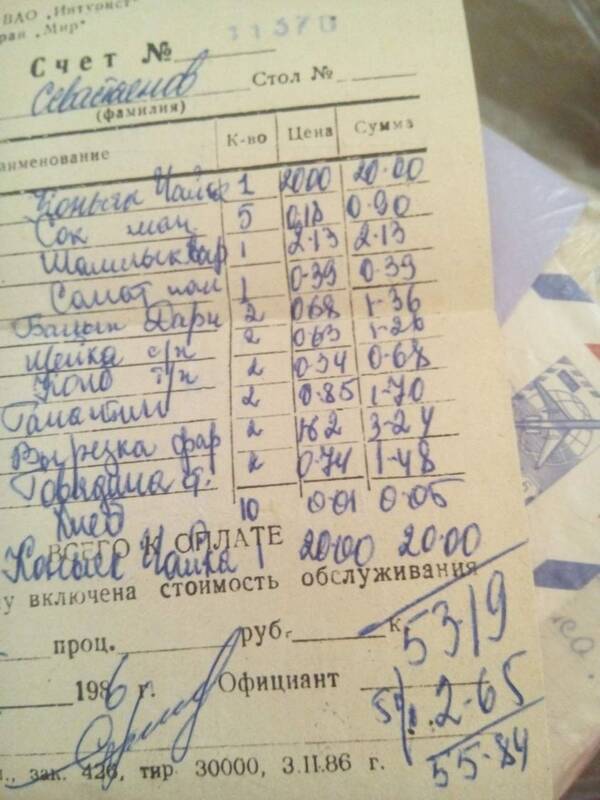 ВАО „Интурист"
ран „Мир"
Счет № 11370
Севастьянов Стол №
(фамилия)
аименование К-во Цена Сумма
Коньяк 1 2000 20-00
Сок ман 5 0,18 0-90
Шашлык кар 1 2-13 2-13
Салат 1 0-39 0-39
2 068 1-36
Шейка с/к 2 0,63 1-26
Колб т/к 2 0-34 0-68
2 0.85 1-70
Вырезка фар 2 162 3-24
Говядина 2 0-74 1-48
Хлеб 10 0-01 0-05
ВСЕГО К ОПЛАТЕ
Коньяк Чайка 1 20-00 20-00
у включена стоимость обслуживания
проц. руб. к.
53-19
1986 г. Официант
5% 2-65
55-84
зак. 426, тир 30000, 3.II.86 г.